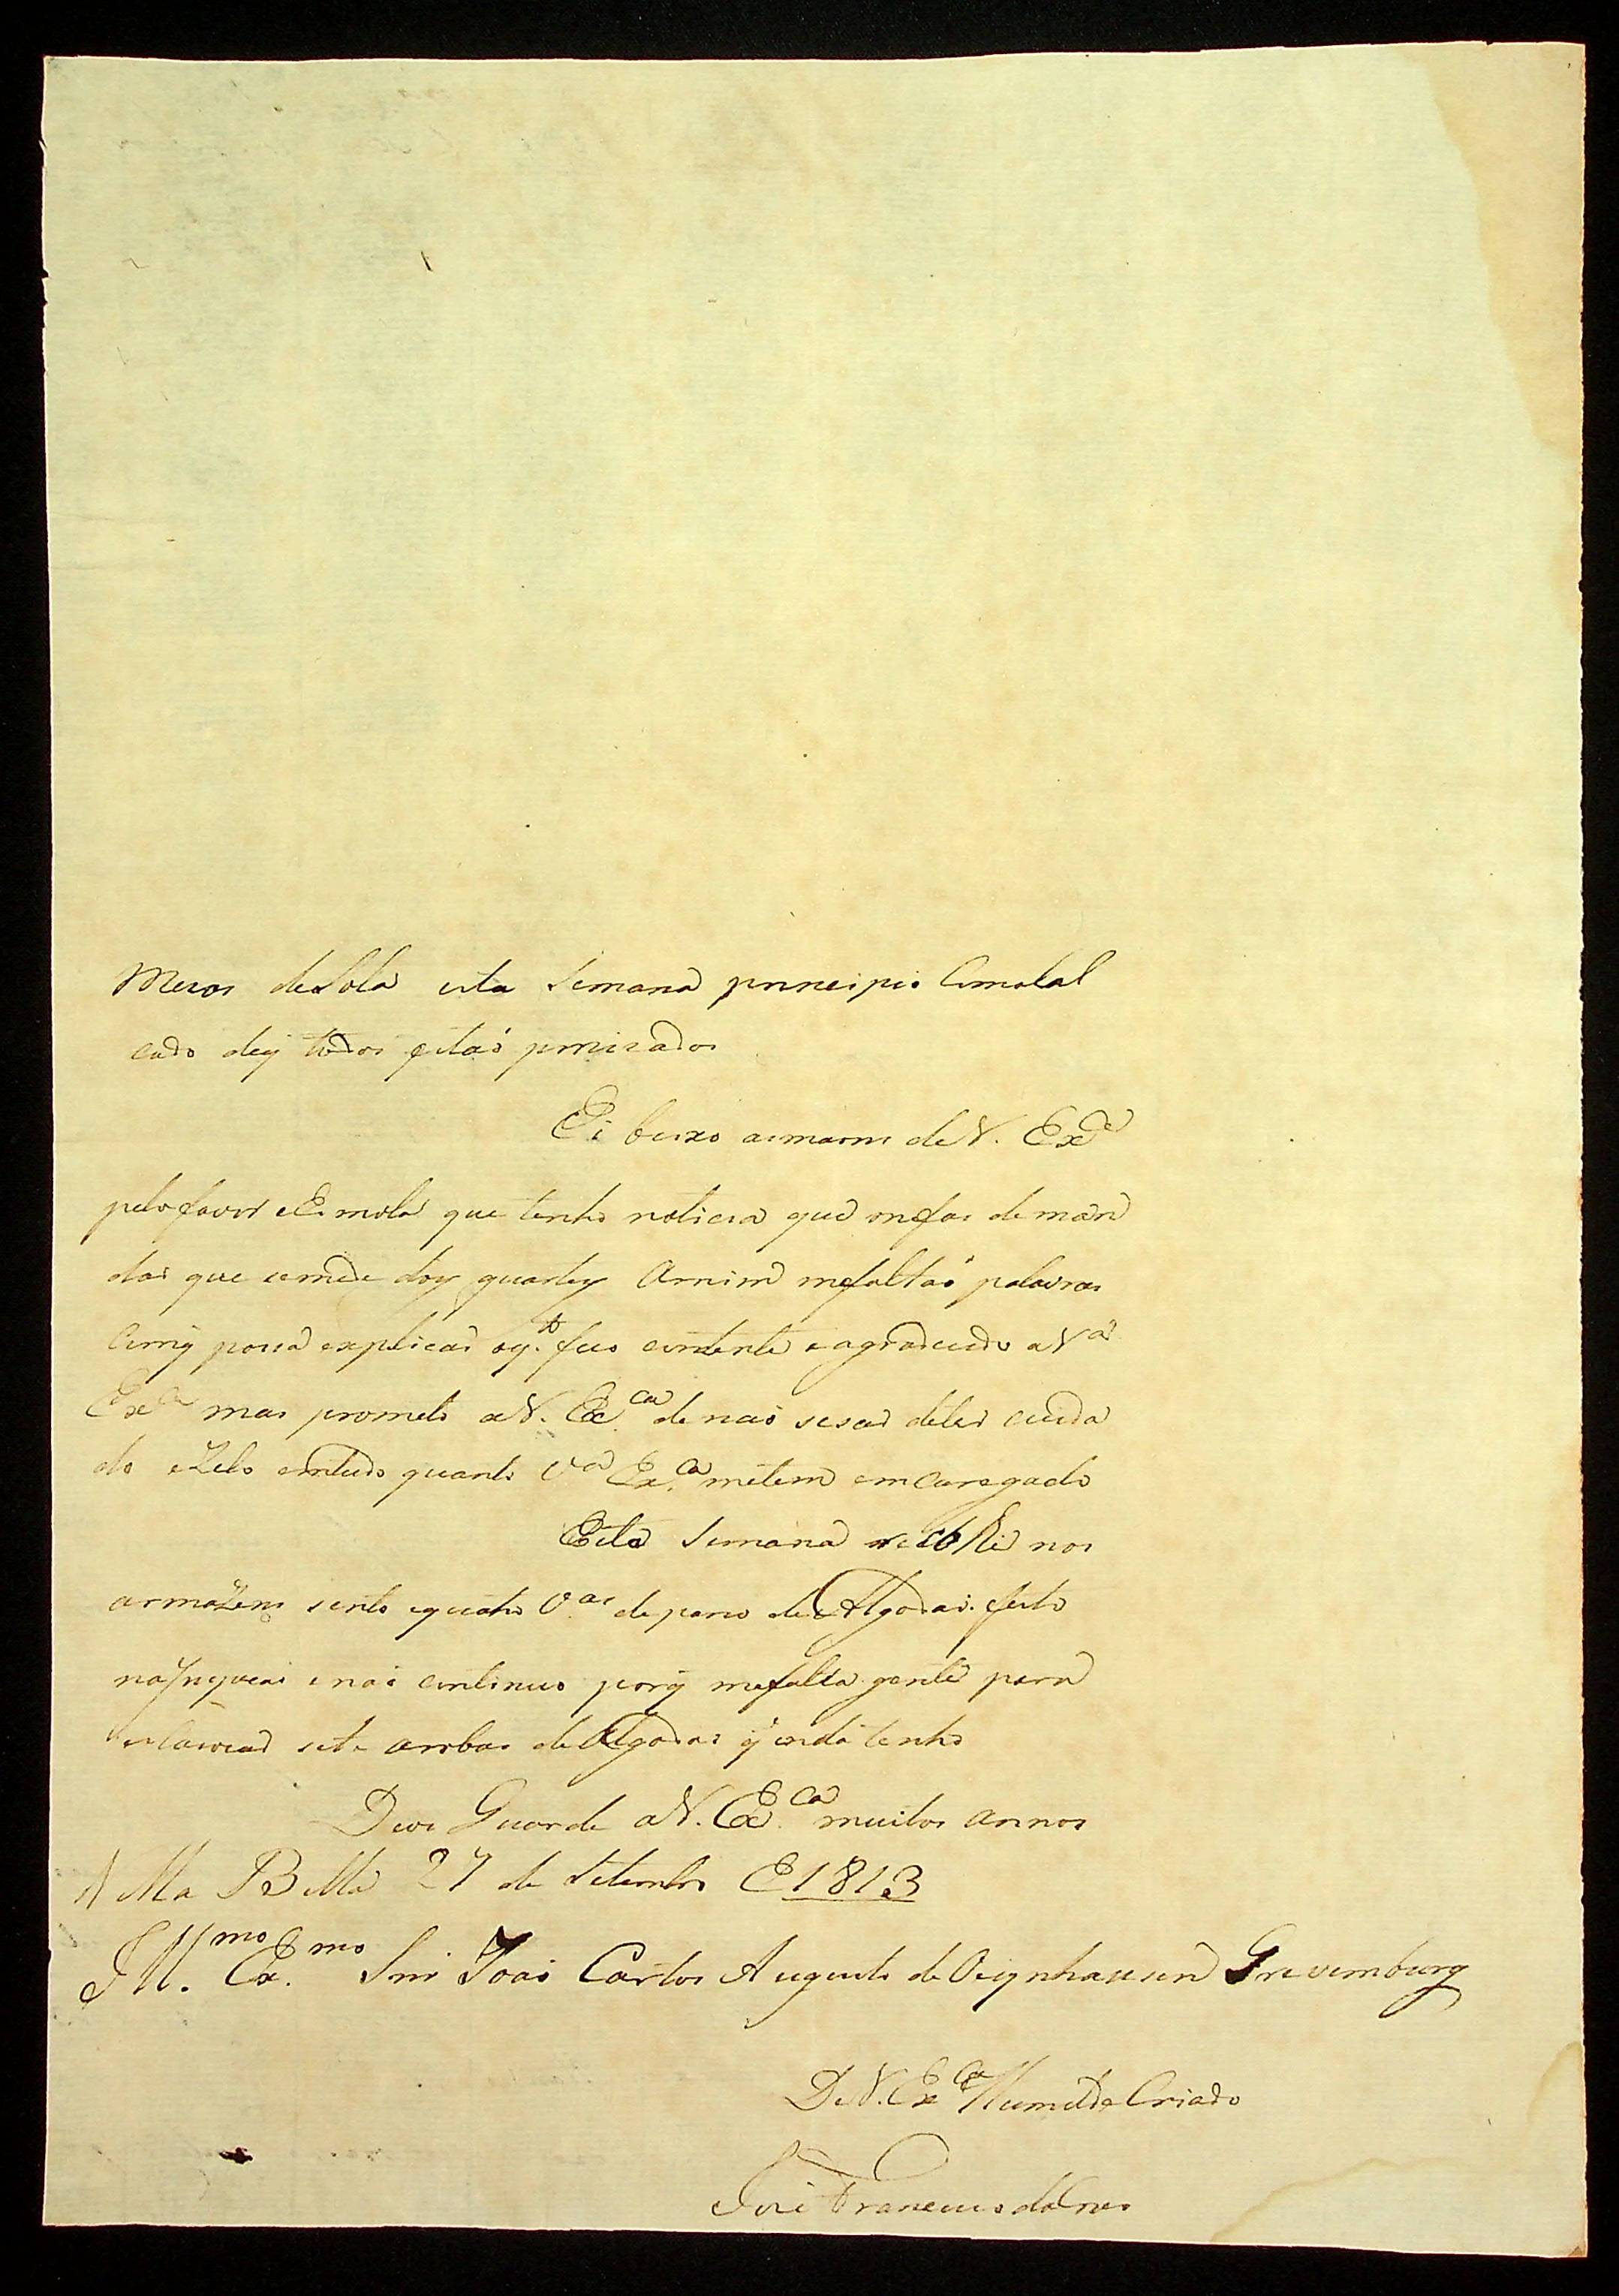 Meios de Sola esta Semana principio Comocal
cado deq todos estaõ percizados
Eu beixo asmaons deV. Exª
pelo favor eEsmola que tenho noticia que mefas deman
dar que semede dos quarteis Amim mefaltaõ palavras
Comq possa explicar oq.to fico contente eagradecido aVª
Exª mas prometo aV. Ex.ca de naõ sesar deter cuida
do eZelo emtudo quanto Vª Ex.ca metem emCaregado
Esta Semana recolhi nos
armaZens sento equatro V.as de pano de Algodaõ feito
e naõ continuo porq mefalta gente para
sete arobas deAlgodaõ q inda tenho
Deos Guarde aV. Ex.ca muitos annos
Villa Bella 27 de Setembro E 1813
Ill.mo Ex.mo Snr Joaõ Carlos Augusto de Oeynhausen Grevemburg
DeV. Exca Humilde Criado
Joze Francisco daCruz